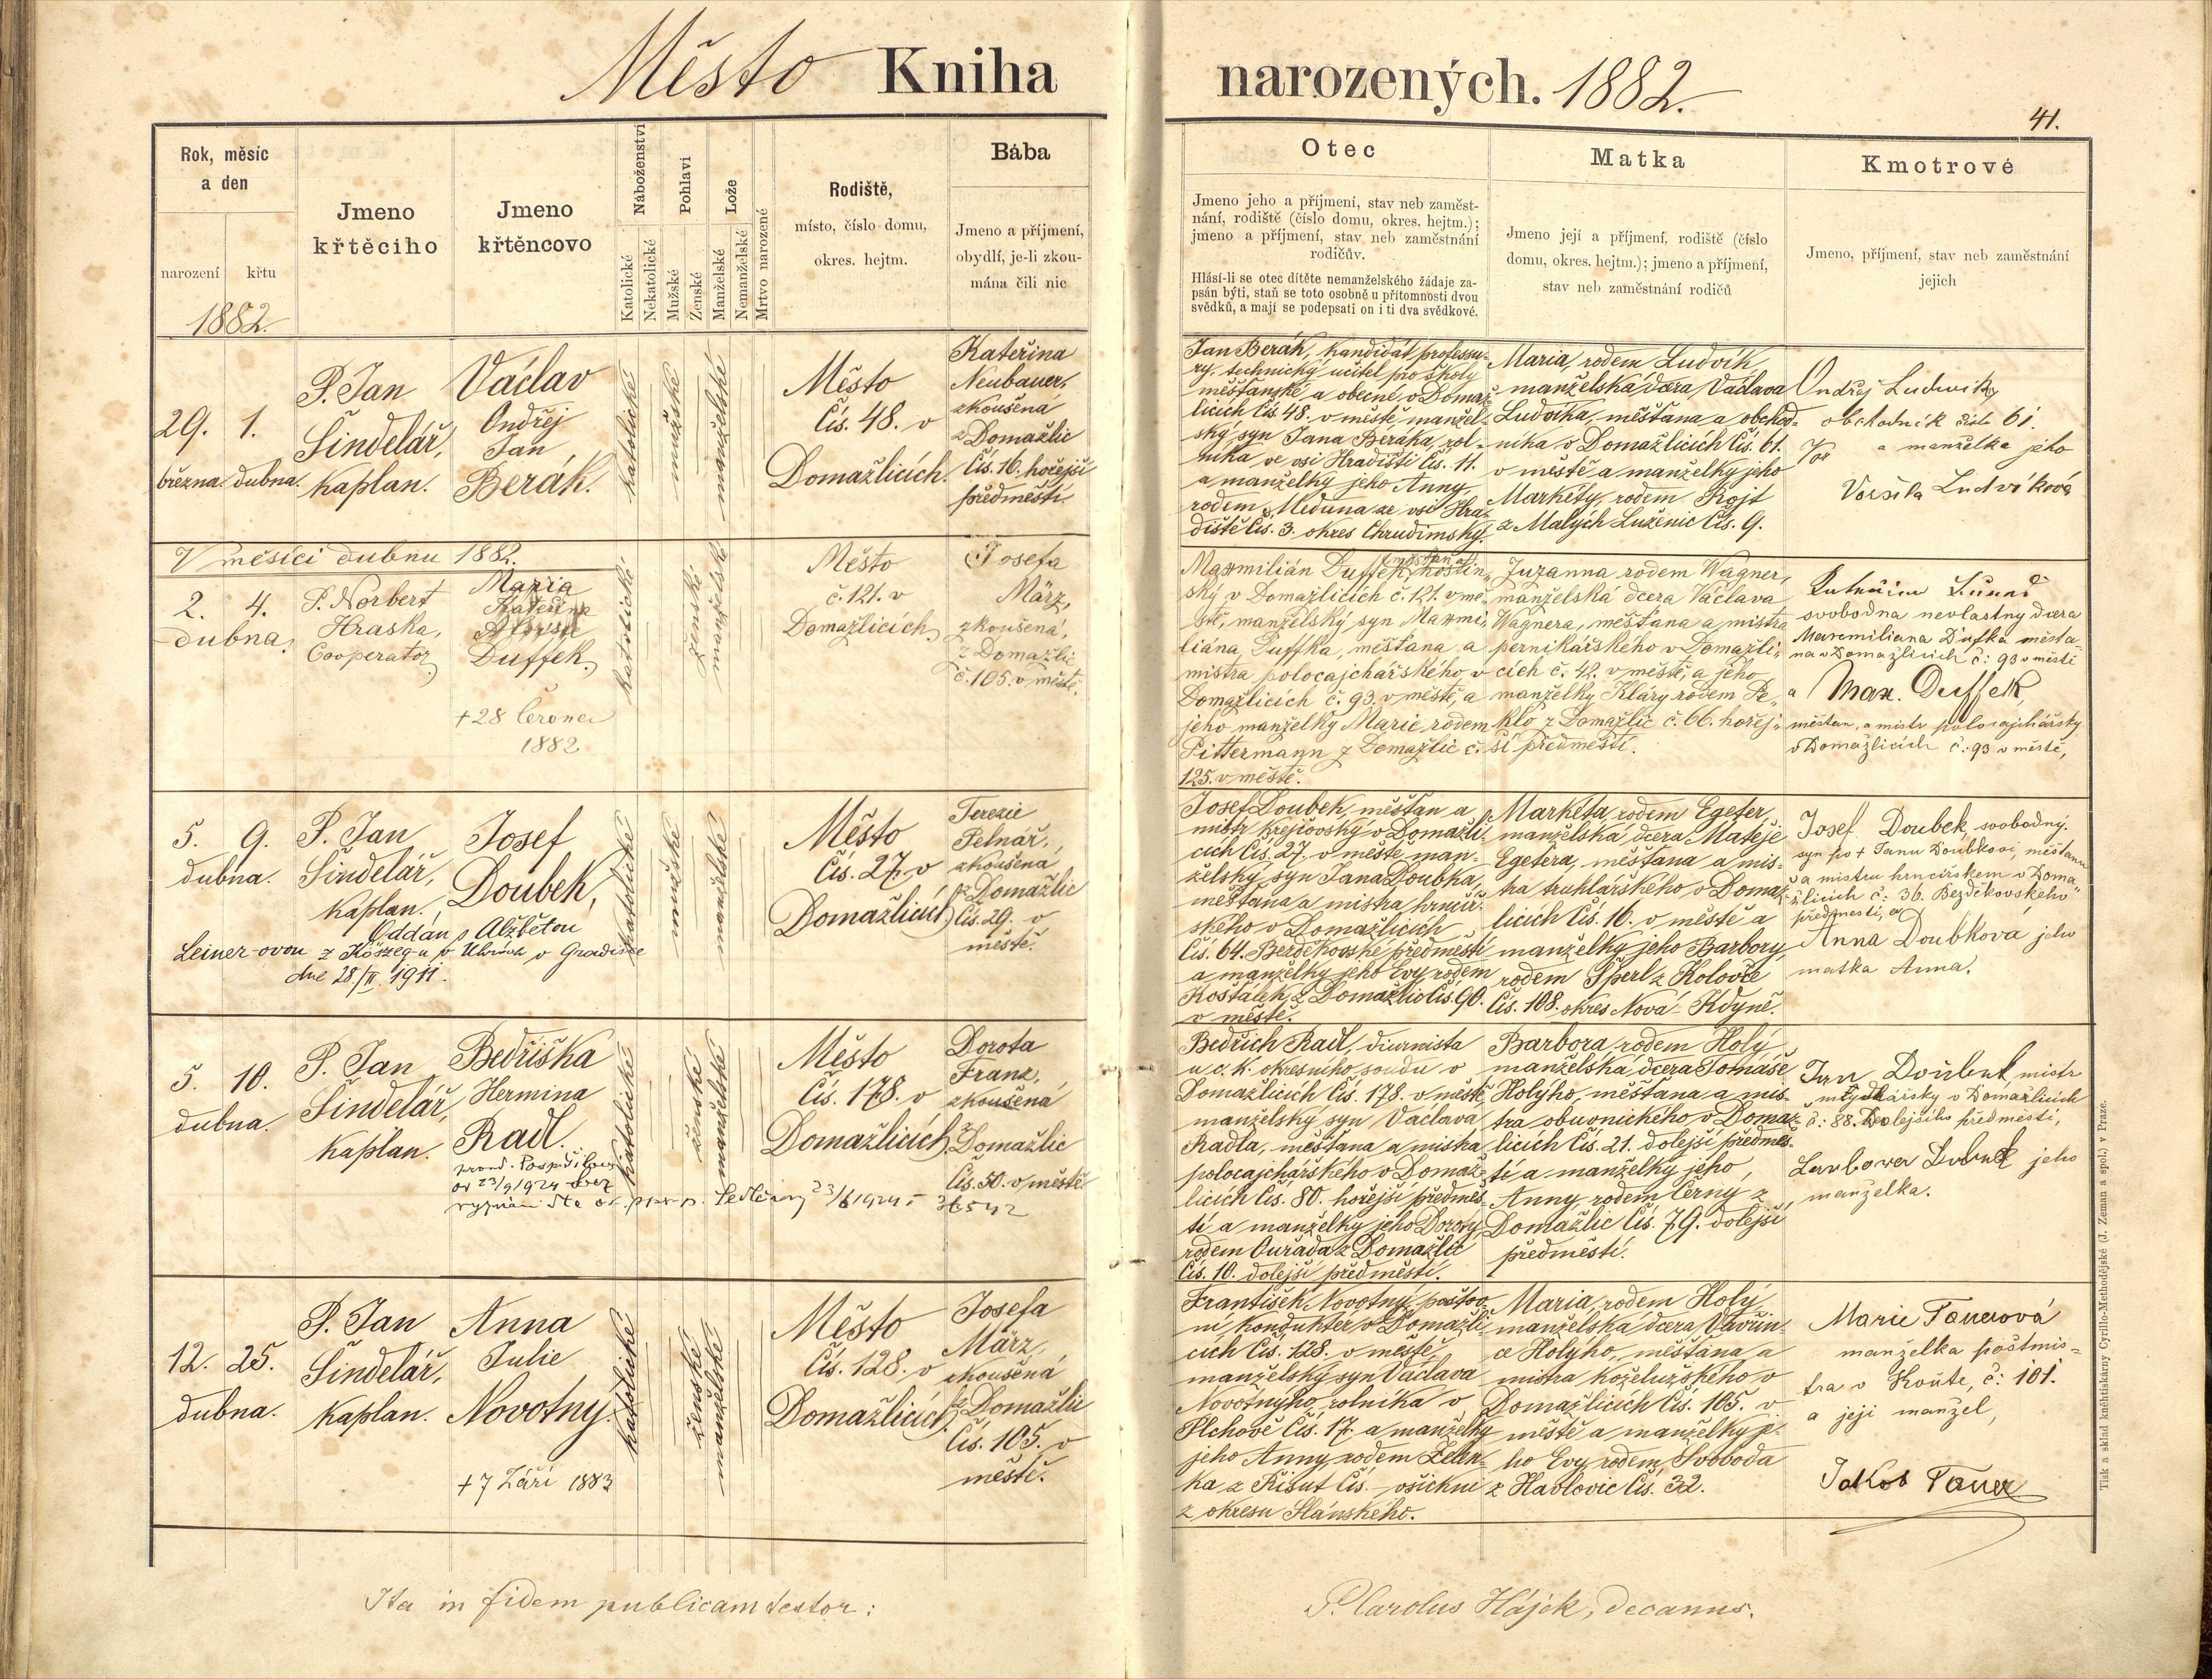 Město Kniha narozených. 1882.
41.
Rok, měsíc
a den
narození křtu
1882.
Jmeno
křtěcího
Jmeno
křtěncovo
Náboženství
Katolické
Nekatolické
Pohlaví
Mužské
Ženské
Lože
Manželské
Nemanželské
Mrtvo narozené
Rodiště,
místo, číslo domu,
okres. hejtm.
Bába
Jmeno a příjmení,
obydlí, je-li zkou-
mána čili nic
Otec
Jmeno jeho a příjmení, stav neb zaměst-
nání, rodiště (číslo domu, okres. hejtm.);
jmeno a příjmení, stav neb zaměstnání
rodičův.
Hlásí-li se otec dítěte nemanželského žádaje za-
psán býti, staň se toto osobně u přítomnosti dvou
svědků, a mají se podepsati on i ti dva svědkové.
Matka
Jmeno její a příjmení, rodiště (číslo
domu, okres. hejtm.); jmeno a příjmení,
stav neb zaměstnání rodičů
Kmotrové
Jmeno, příjmení, stav neb zaměstnání
jejich
29. 1.
března. dubna.
P. Jan
Šindelář,
kaplan.
Václav
Ondřej
Jan
Berák.
katolické
mužské
manželské
Město
Čís. 48. v
Domažlicích.
Kateřina
Neubauer,
zkoušená
z Domažlic
Čís. 16. hořejší
předměstí.
Jan Berák, kandidát professu-
ry, technický učitel pro školy
měšťanské a obecné v Domaž-
licích Čís. 48. v městě, manžel-
ský syn Jana Beráka, rol-
níka ve vsi Hradišti Čís. 11.
a manželky jeho Anny,
rodem Meduna ze vsi Hra-
diště Čís. 3. okres Chrudimský.
Maria, rodem Ludvík
manželská dcera Václava
Ludvíka, měšťana a obchod-
níka v Domažlicích Čís. 61.
v městě a manželky jeho
Markéty, rodem Rojt
z Malých Luženic Čís. 9.
Ondřej Ludwik
obchodník číslo 61.
a manželka jeho
Voršila Ludvíková
V měsíci dubnu 1882.
2. 4.
dubna.
P. Norbert
Hraska,
Cooperator
Maria
Kateřina
Duffek.
+ 28 Červnec
1882
katolické
ženské
manželské
Město
č. 121. v
Domažlicích.
Josefa
März,
zkoušená,
z Domažlic
č. 105. v městě.
Maxmilián Duffek, měšťan a hostin-
ský v Domažlicích č. 121. v mě-
stě, manželský syn Maxmi-
liána Duffka, měšťana a
mistra polocajchářského, v
Domažlicích č. 93. v městě, a
jeho manželky Marie rodem
Pittermann z Domažlic č.
125. v městě.
Zuzanna rodem Wagner,
manželská dcera Václava
Wagnera, měšťana a mistra
perníkářského v Domažli-
cích č. 42. v městě, a jeho
manželky Kláry rodem Pe-
klo z Domažlic č. 66. hořej-
ší předměstí.
svobodna nevlastny dcera
Maxmiliana Dufka měšťa-
na v Domažlicích č: 93 v městě
a Max. Duffek,
měšťan, a mistr polocajchářsky
v Domažlicích č: 93 v městě,
5. 9.
dubna.
P. Jan
Šindelář,
kaplan.
Josef
Doubek,
Oddán s Alžbětou
Leiner-ovou z Köszeg-u v Uhrách v Gradišce
dne 28./II. 1911.
katolické
mužské
manželské
Město
Čís. 27. v
Domažlicích.
Terezie
Pelnář,
zkoušená
z Domažlic
Čís. 29. v
městě.
Josef Doubek, měšťan a
mistr krejčovský v Domažli-
cích Čís. 27. v městě, man-
želský syn Jana Doubka,
měšťana a mistra hrnčíř-
ského v Domažlicích
Čís. 64. Bezděkovské předměstí
a manželky jeho Evy, rodem
Košťálek z Domažlic Čís. 90.
v městě.
Markéta, rodem Egeter
manželská dcera Matěje
Egetera, měšťana a mis-
tra truhlářského v Domaž-
licích Čís. 16. v městě a
manželky jeho Barbory,
rodem Šperl z Koloveč
Čís. 108. okres Nová-Kdyně.
Josef Doubek, svobodný.
syn po + Janu Doubkovi, měšťanu
a mistru hrnčířském v Doma-
žlicích č: 36. Bezděkovského
předměstí, a
Anna Doubková jeho
matka Anna.
5. 10.
dubna.
P. Jan
Šindelář,
kaplan.
Bedřiška
Hermina
Radl.
provd. Pospíšilova
od 23/9 1924 bez
vyznání dle ok. Sedlčany 23/6 1924 36542
katolické
ženské
manželské
Město
Čís. 178. v
Domažlicích.
Dorota
Franz,
zkoušená
z Domažlic
Čís. 50. v městě.
Bedřich Radl, diurnista
u c. k. okresního soudu v
Domažlicích Čís. 178. v městě
manželský syn Václava
Radla, měšťana a mistra
polocajchářského v Domaž-
licích Čís. 80. hořejší předměs-
tí a manželky jeho Doroty,
rodem Ouřada z Domažlic
Čís. 10. dolejší předměstí.
Barbora, rodem Holý
manželská dcera Tomáše
Holýho, měšťana a mis-
tra obuvnického v Domaž-
licích Čís. 21. dolejší předměs-
tí a manželky jeho,
Anny, rodem Černý z
Domažlic Čís. 79. dolejší
předměstí.
Jan Doubek, mistr
mydlářsky v Domažlicích
č: 88. Dolejšího předměstí,
jeho
manželka.
12. 25.
dubna.
P. Jan
Šindelář,
kaplan.
Anna
Julie
Novotný.
+ 7 Září 1883
katolické
ženské
manželské
Město
Čís. 128. v
Domažlicích.
Josefa
März,
zkoušená
z Domažlic
Čís. 105. v
městě.
František Novotný, poštov-
ní kondukter v Domažli-
cích Čís. 128. v městě,
manželský syn Václava
Novotnýho, rolníka v
Plchově Čís. 17. a manželky
jeho Anny, rodem Zelen-
ka z Řisut Čís. – všickni
z okresu Slánského.
Maria, rodem Holý,
manželská dcera Vavřin-
ce Holýho, měšťana a
mistra koželužského v
Domažlicích Čís. 105. v
městě a manželky je-
ho Evy, rodem Svoboda
z Havlovic Čís. 32.
Marie Tauerová
manželka poštmis-
tra v Koutě, č: 101.
a jeji manžel,
Jakob Tauer
Ita in fidem publicam testor:
P. Carolus Hájek, decanus.
Tisk a sklad knihtiskárny Cyrillo-Methodějské (J. Zeman a spol.) v Praze.